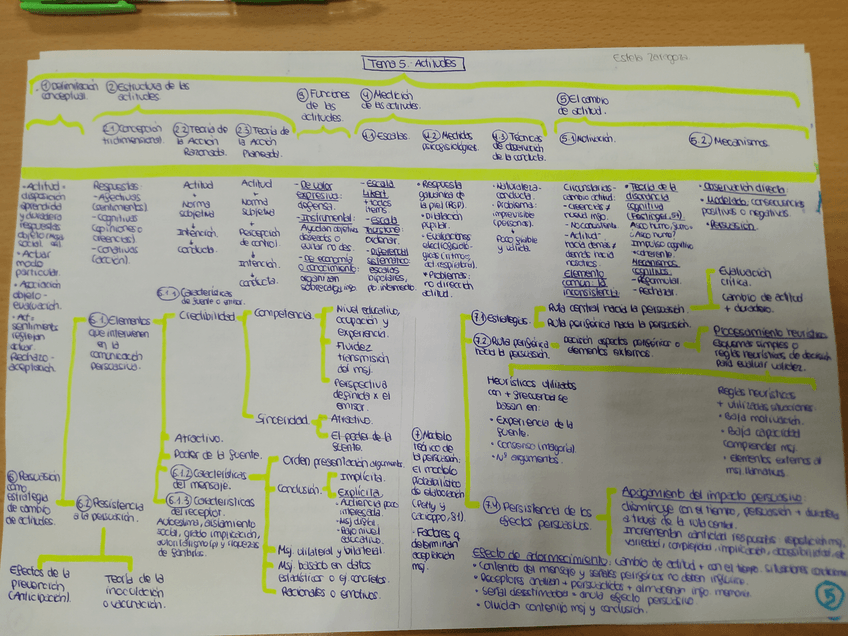 Tema 5. Actitudes
Estela Zaragoza
① Delimitación
conceptual.
② Estructura de las
actitudes.
③ Funciones
de las
actitudes.
④ Medición
de las actitudes.
⑤ El cambio
de actitud.
2.1 Concepción
tridimensional.
2.2 Teoría de
la Acción
Razonada.
2.3 Teoría de
la Acción
Planeada.
4.1 Escalas.
4.2 Medidas
psicofisiológicas.
4.3 Técnicas
de observación
de la conducta.
5.1 Motivación.
5.2. Mecanismos.
• Actitud •
disposición
aprendida
y duradera
respuestas
objeto
social
• Actuar
modo
particular.
• Asociación
objeto -
evaluación.
sentimientos
reflejan
actuar.
Rechazo -
aceptación.
Respuestas:
- Afectivas
(sentimientos)
- Cognitivas
(opiniones o
creencias)
- Conativas
(acción).
Actitud
+
Norma
subjetiva
↓
Intención.
↓
conducta.
Actitud
+
Norma
subjetiva
+
Percepción
de control.
↓
Intención.
↓
conducta.
- De valor
expresiva:
defensa.
- Instrumental:
Ayudan objetivos
deseados o
evitar no des.
- De economía
o conocimiento:
organizan
- Escala
Likert
+ todos
items
- Escala
Thurstone
Ordenar.
- Diferencial
semántico
escalas
bipolares,
pto. intermedio
• Respuesta
galvánica de
la piel (RGP).
• Dilatación
pupilar.
• Evaluaciones
• Problemas:
no dirección
actitud.
• Naturaleza -
conducta.
• Problema:
imprevisible
(personas).
↓
Poco fiable
y válida.
Circunstancias -
cambio actitud:
nuevo
- No consistente
- Actitud
hacia demás ≠
demás hacia
nosotros.
Elemento
común: la
inconsistencia
• Teoría de la
disonancia
cognitiva
(Festinger, 57)
Impulso cognitivo
+ coherente.
Mecanismos
cognitivos.
- Reformular.
- Rechazar.
• Observación directa:
• Modelado: consecuencias
positivas o negativas.
• Persuasión.
⑥ Persuasión
como
estrategia
de cambio
de actitudes.
6.1 Elementos
que intervienen
en la
comunicación
persuasiva.
6.1.1 Características
de fuente o emisor.
Credibilidad
Competencia
Nivel educativo,
ocupación y
experiencia.
Fluidez
transmisión
del msj.
Perspectiva
definida x el
emisor.
Sinceridad
Atractivo.
El poder de la
fuente.
Atractivo.
Poder de la fuente.
6.1.2 Características
del mensaje.
Orden presentación argumento.
Conclusión.
Implícita.
Explícita.
• Audiencia poco
interesada
• Msj difícil
• Bajo nivel
educativo.
Msj unilateral y bilateral.
Msj basado en datos
estadísticos o ej concretos.
Racionales o emotivos.
6.1.3 Características
del receptor.
Autoestima, aislamiento
social, grado implicación,
fantasías.
6.2 Resistencia
a la persuasión.
Efectos de la
prevención
(Anticipación).
Teoría de la
inoculación
o vacunación.
⑦ Modelo
teórico de
la persuasión.
El modelo
probabilístico
de elaboración
(Petty y
Cacioppo, 81).
• Factores q
determinan
aceptación
msj.
7.1 Estrategias.
Ruta central hacia la persuasión
Ruta periférica hacia la persuasión.
Evaluación
crítica.
cambio de actitud
+ duradero.
7.2 Ruta periférica
hacia la persuasión.
decisión aspectos periféricos o
elementos externos.
Procesamiento heurístico:
esquemas simples o
reglas heurísticas de decisión
para evaluar validez.
Heurísticos utilizados
con + frecuencia se
basan en:
• Experiencia de la
fuente.
• Consenso (mayoría).
• Nº argumentos.
Reglas heurísticas
+ utilizadas situaciones:
• Baja motivación.
• Baja capacidad
comprender msj
• elementos externos al
msj llamativos.
7.4 Persistencia de los
efectos persuasivos.
Apagamiento del impacto persuasivo:
disminuye con el tiempo, persuasión + duradera
a través de la ruta central.
Incrementan cantidad respuestas: repetición msj,
variedad, complejidad, implicación, accesibilidad,
Efecto de adormecimiento: cambio de actitud + con el tiempo. situaciones condiciones
• Contenido del mensaje y señales periféricas no deben influirse.
• Receptores analizan + persuadidos + almacenan info memoria.
• Señal desestimadora - anula efecto persuasivo
• Olvidan contenido msj y conclusión.
5